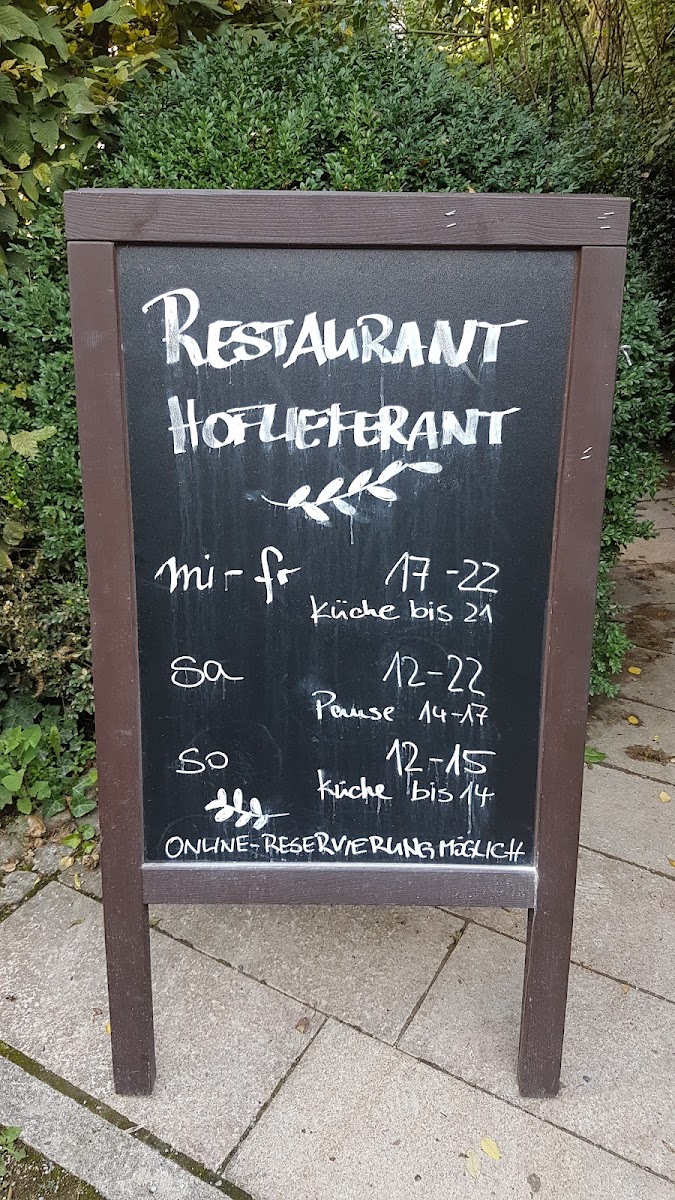 RESTAURANT
HOFLIEFERANT
mi - fr 17 - 22
Küche bis 21
Sa 12 - 22
Pause 14-17
So 12 - 15
Küche bis 14
ONLINE-RESERVIERUNG MÖGLICH